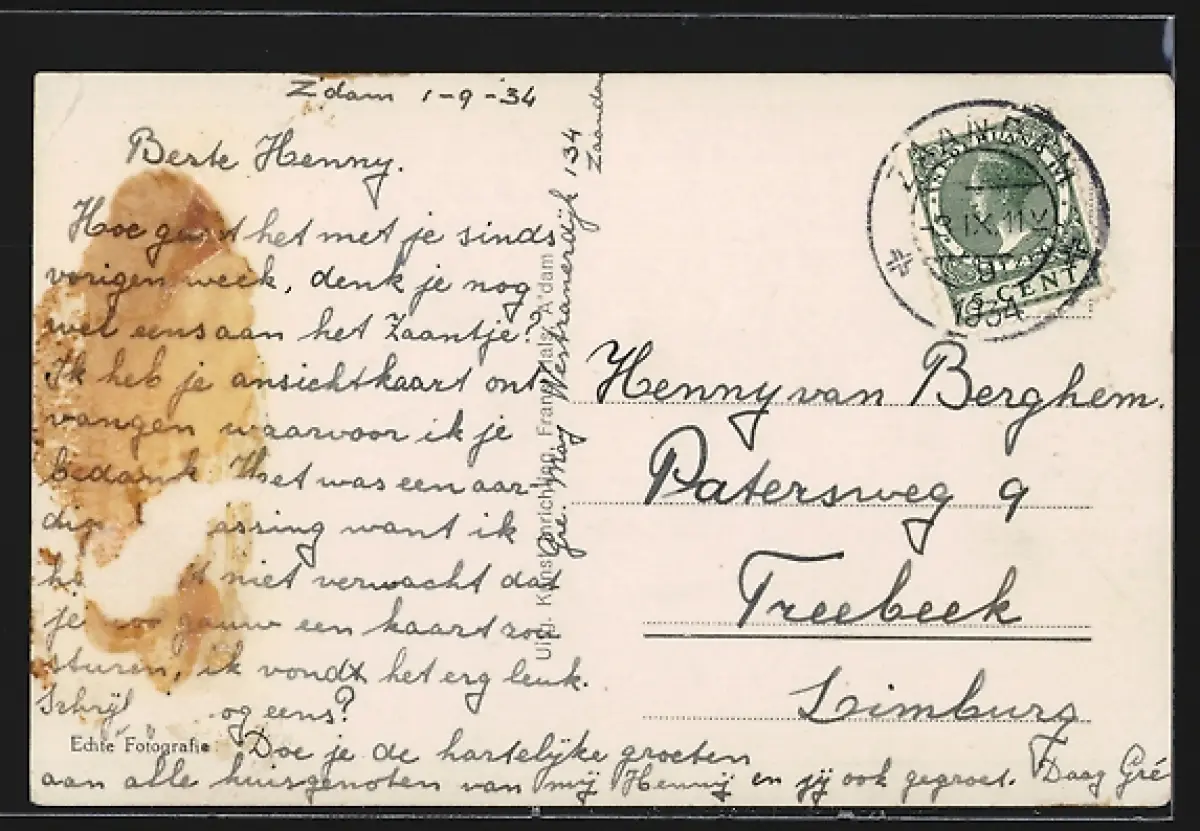 Z'dam 1-9-34
Beste Henny.
Hoe gaat het met je sinds
vorigen week, denk je nog
wel eens aan het Zaantje?
Ik heb je ansichtkaart ont
vangen waarvoor ik je
bedank. Het was een aar-
dig assing want ik
niet verwacht dat
je zoo gauw een kaart zou
sturen, ik vondt het erg leuk.
Schrijf og eens?
Doe je de hartelijke groeten
aan alle huisgenoten van mij Henny en jij ook gegroet. Daag Gré
Echte Fotografie
Uitg. Kunstinrichting Frans Hals, A'dam
Gré. May Westzanerdijk 134
Zaandam
ZAANDAM
3 IX. 11 V
1934
5 CENT
Henny van Berghem.
Patersweg 9
Treebeek
Limburg